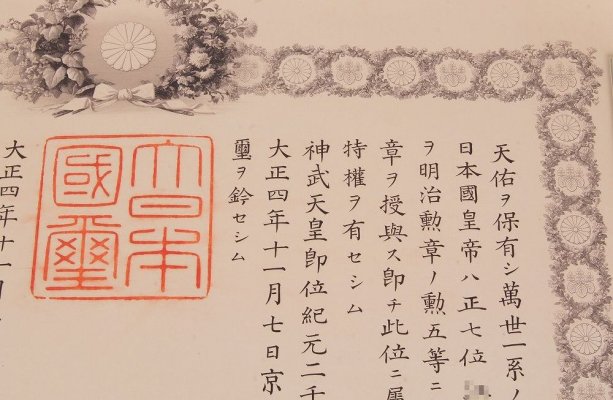 天佑ヲ保有シ萬世一系ノ
日本國皇帝ハ正七位
ヲ明治勲章ノ勲五等ニ
章ヲ授與ス即チ此位ニ屬
特權ヲ有セシム
神武天皇即位紀元二千
大正四年十一月七日京
璽ヲ鈐セシム
大日本
國璽
大正四年十一月